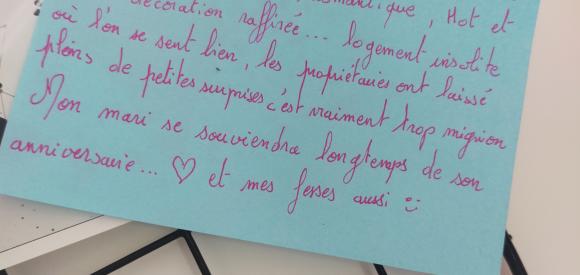 décoration raffinée... romantique, Hot et
où l'on se sent bien, logement insolite
pleins de petites surprises, les propriétaires ont laissé
c'est vraiment trop mignon
Mon mari se souviendra longtemps de son
anniversaire... ♡ et mes fesses aussi :)